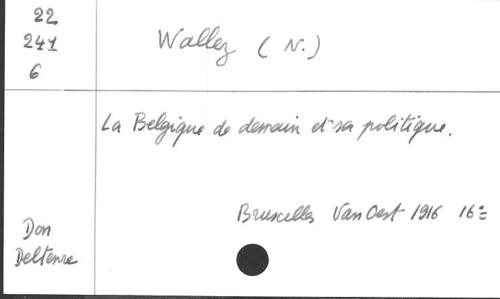 22
241
6
Wallez (N.)
La Belgique de demain et sa politique.
Bruxelles Van Oest 1916 16º
Don
Deltenre